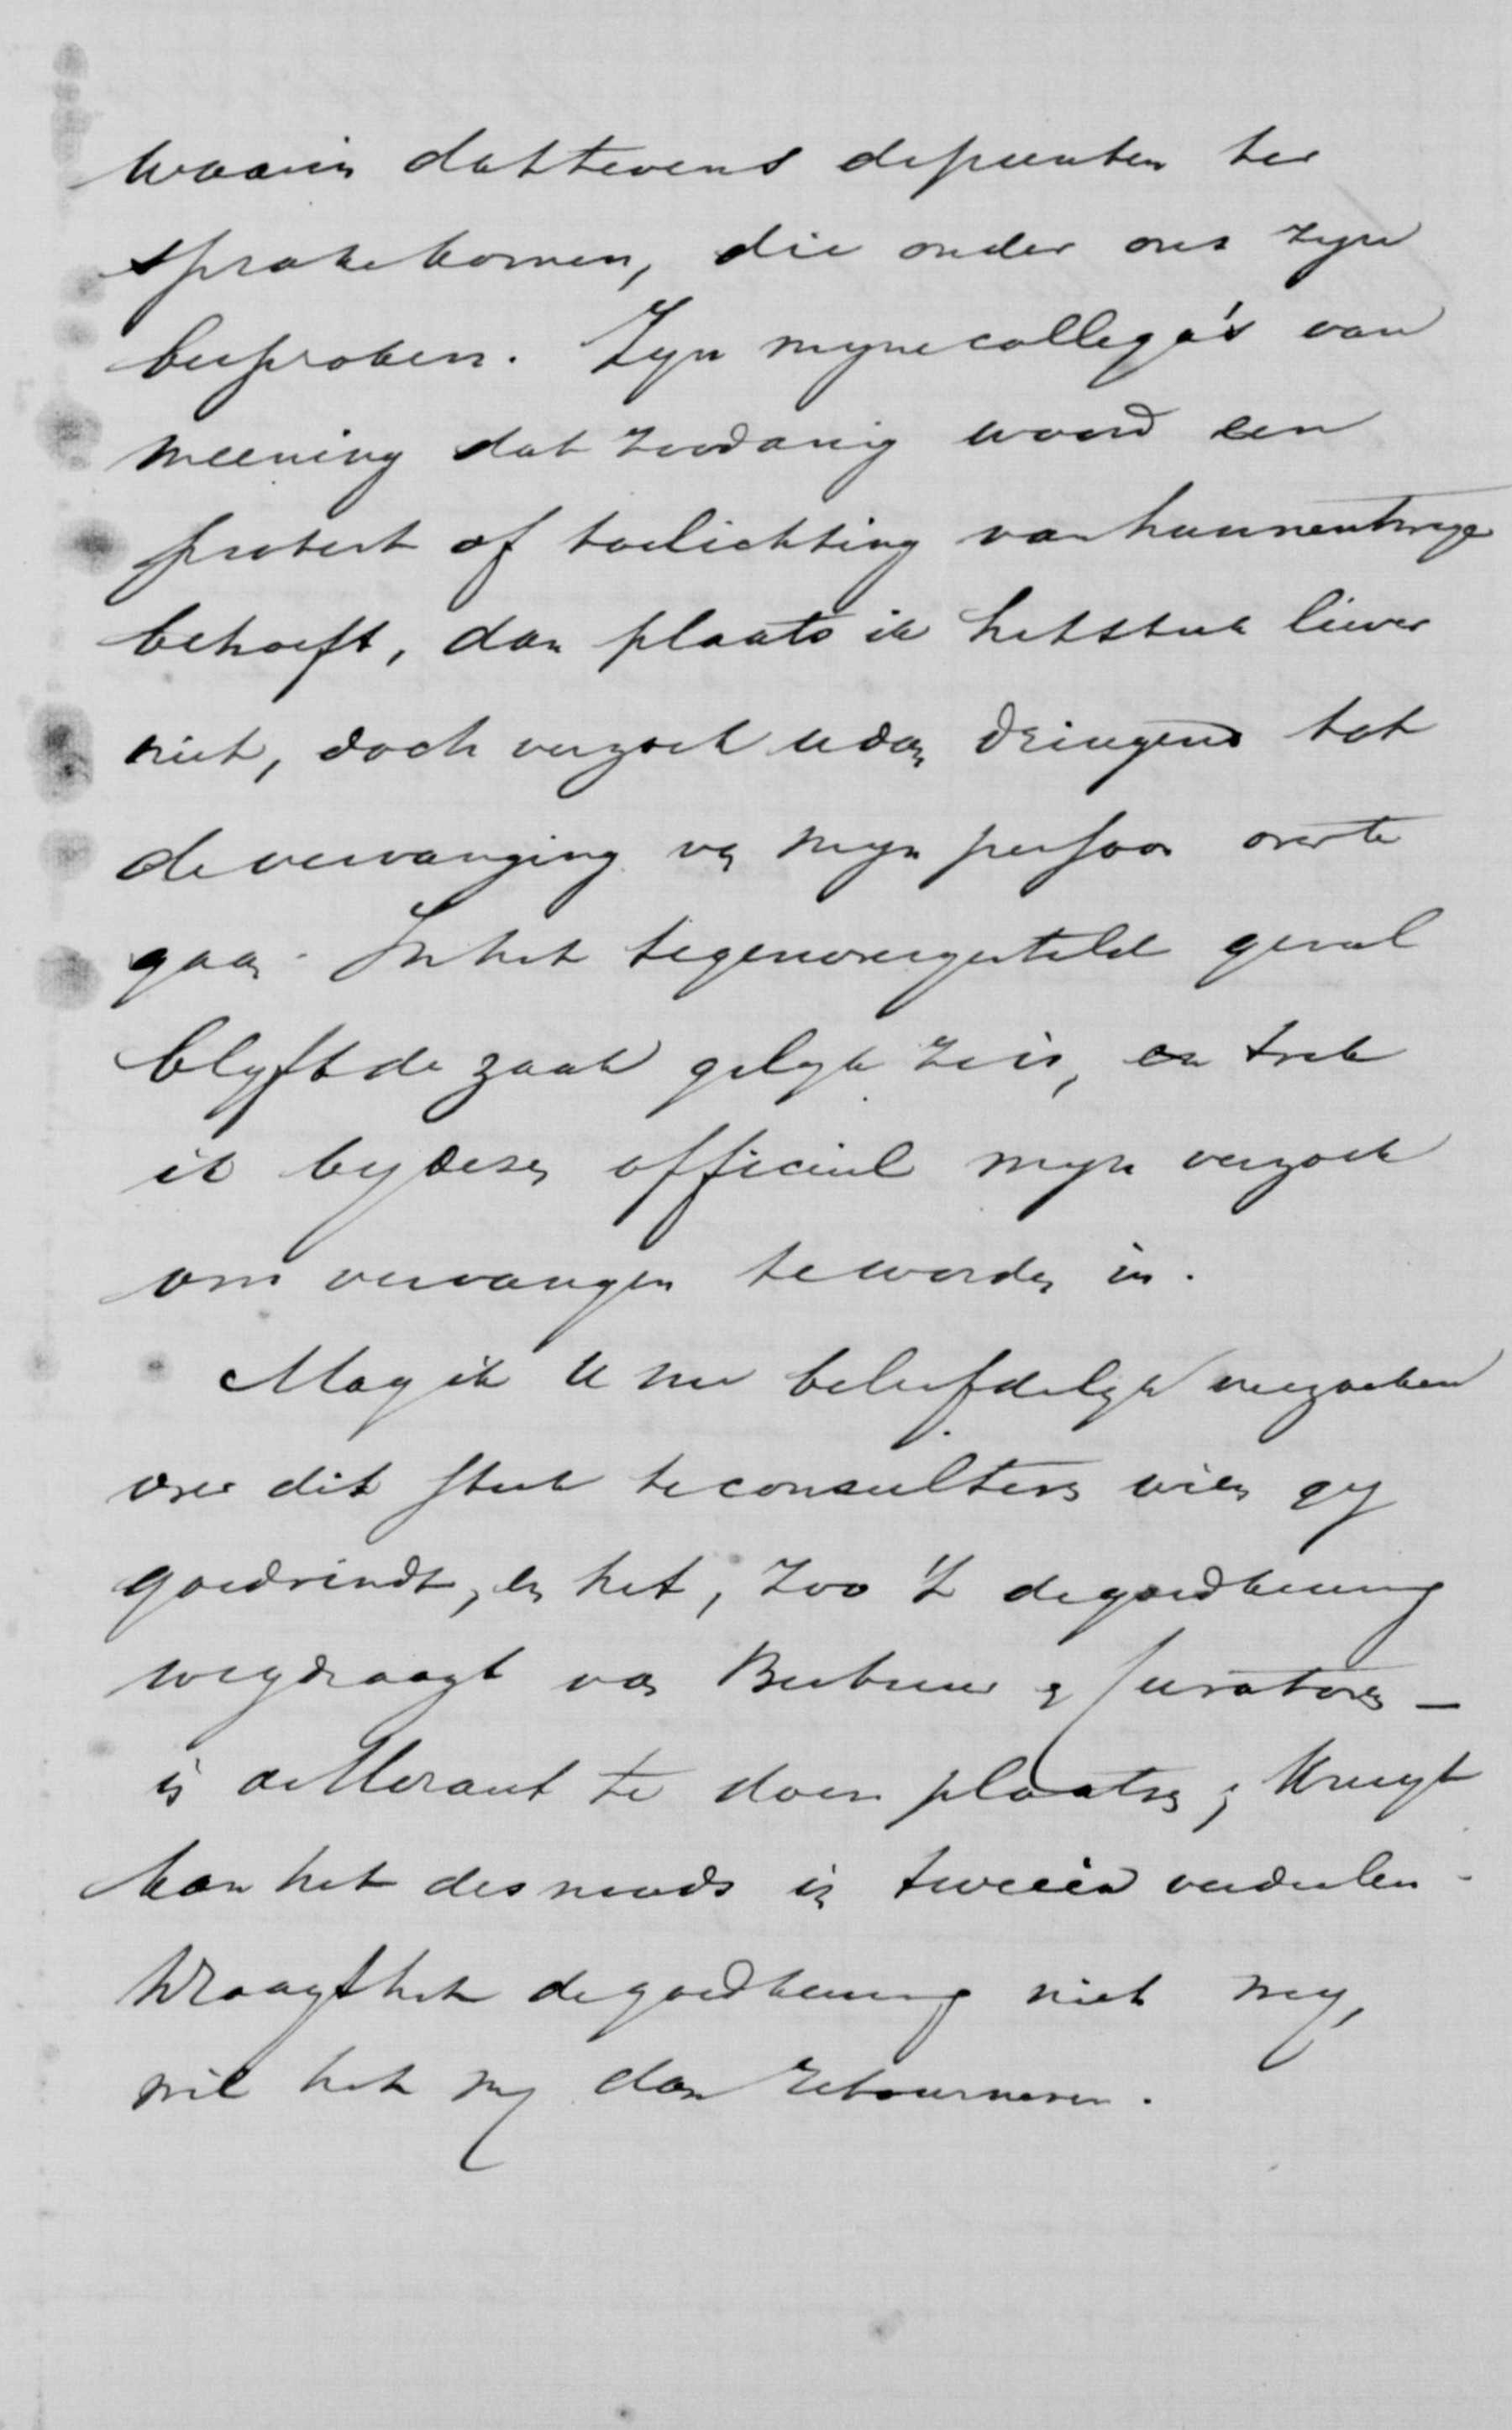 waarin dat tevens de punten ter
sprake komen, die onder ons zyn
besproken. Zyn myne collega's van
meening dat zoodanig woord een
protest of toelichting van hunnentwege
behoeft, dan plaats ik het stuk liever
niet, doch verzoek u dan dringend tot
de vervanging van myn persoon over te
gaan. In het tegenovergesteld geval
blyft de zaak gelyk ze is, en trek
ik by dezen officieel myn verzoek
om vervangen te worden in.
Mag ik U nu beleefdelyk verzoeken
over dit stuk te consulteren wien gy
goedvindt, en het, zoo 't de goedkeuring
wegdraagt van Bestuur & Curatoren —
in de Heraut te doen plaatsen; Kruyt
kan het desnoods in tweeën verdeelen.
Draagt het de goedkeuring niet weg,
wil het my dan retourneren.